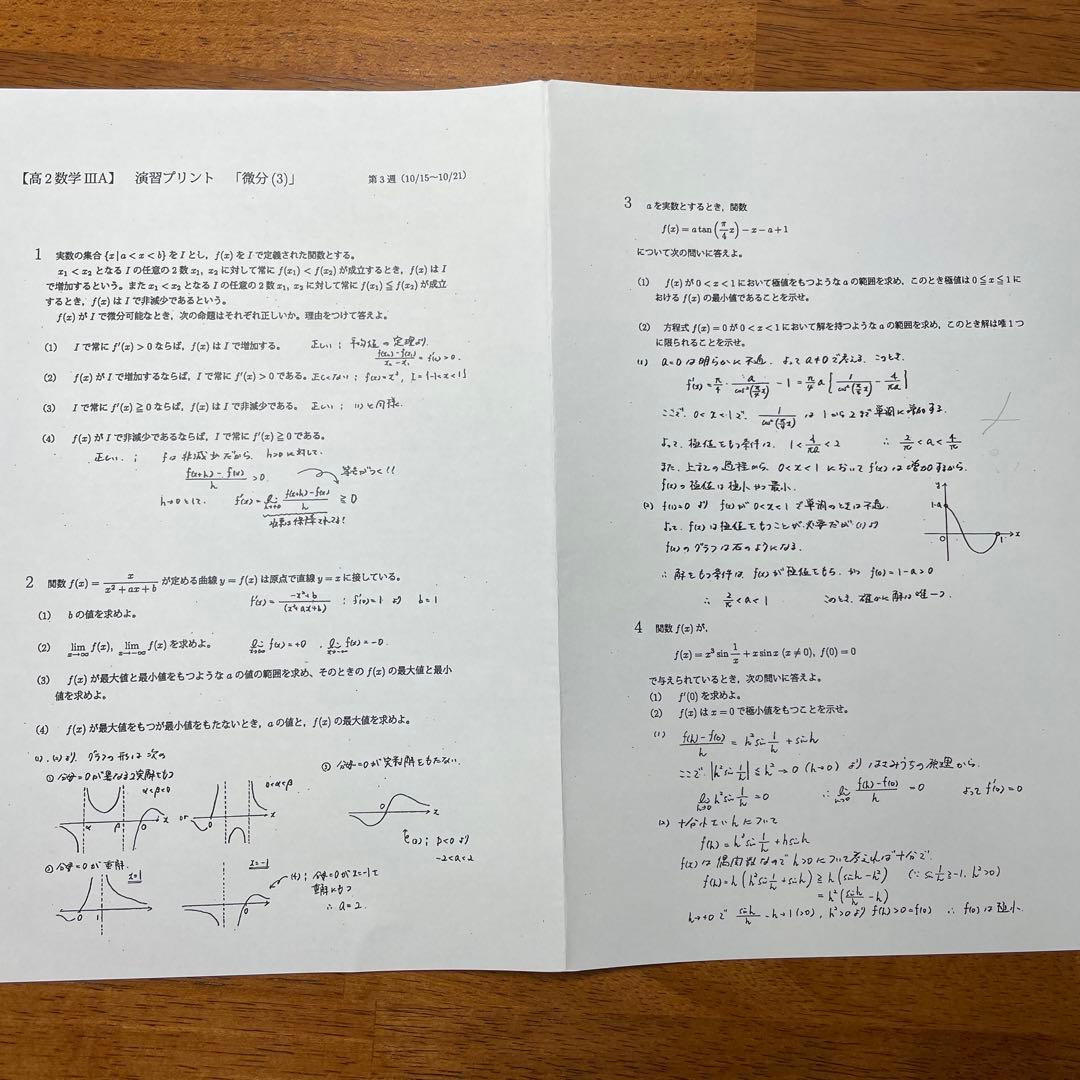 【高２数学ⅢA】 演習プリント 「微分(3)」 第３週（10/15〜10/21）
1 実数の集合 {x | a < x < b} を I とし，f(x) を I で定義された関数とする。
x₁ < x₂ となる I の任意の２数 x₁, x₂ に対して常に f(x₁) < f(x₂) が成立するとき，f(x) は I
で増加するという。また x₁ < x₂ となる I の任意の２数 x₁, x₂ に対して常に f(x₁) ≦ f(x₂) が成立
するとき，f(x) は I で非減少であるという。
f(x) が I で微分可能なとき，次の命題はそれぞれ正しいか。理由をつけて答えよ。
(1) I で常に f′(x) > 0 ならば，f(x) は I で増加する。 正しい； 平均値の定理より
(f(x₂) − f(x₁))/(x₂ − x₁) = f′(c) > 0.
(2) f(x) が I で増加するならば，I で常に f′(x) > 0 である。 正しくない； f(x) = x³, I = {-1<x<1}
(3) I で常に f′(x) ≧ 0 ならば，f(x) は I で非減少である。 正しい； (1)と同様.
(4) f(x) が I で非減少であるならば，I で常に f′(x) ≧ 0 である。
正しい； fは非減少だから， h>0に対して.
(f(x+h) − f(x))/h > 0. 等号がつく!!
h→0として. f′(x) = lim h→+0 (f(x+h) − f(x))/h ≧ 0
2 関数 f(x) = x/(x² + ax + b) が定める曲線 y = f(x) は原点で直線 y = x に接している。
f′(x) = (−x² + b)/(x² + ax + b)² ； f′(0) = 1 より b = 1
(1) b の値を求めよ。
(2) lim x→∞ f(x), lim x→−∞ f(x) を求めよ。 lim x→∞ f(x) = +0 , lim x→−∞ f(x) = −0.
(3) f(x) が最大値と最小値をもつような a の値の範囲を求め、そのときの f(x) の最大値と最小
値を求めよ。
(4) f(x) が最大値をもつが最小値をもたないとき，a の値と，f(x) の最大値を求めよ。
(1). (2)より グラフの形は次の
① 分母=0が異なる2実解をもつ
α<β<0
α β 0 x
or
0<α<β
0 x
③ 分母=0が実数解をもたない.
0 x
(3)； D<0より
−2<a<2
② 分母=0が重解.
x=1
0 1 x
x=−1
0 x
(4)； 分母=0がx=−1を
重解にもつ
∴ a=2.
3 a を実数とするとき，関数
f(x) = a tan(π/4 x) − x − a + 1
について次の問いに答えよ。
(1) f(x) が 0 < x < 1 において極値をもつような a の範囲を求め，このとき極値は 0 ≦ x ≦ 1 に
おける f(x) の最小値であることを示せ。
(2) 方程式 f(x) = 0 が 0 < x < 1 において解を持つような a の範囲を求め，このとき解は唯１つ
に限られることを示せ。
(1) a=0は明らかに不適. よってa≠0で考える. このとき.
f′(x) = π/4 · a/cos²(π/4 x) − 1 = π/4 a {1/cos²(π/4 x) − 4/πa}
ここで. 0<x<1で. 1/cos²(π/4 x) は1から2まで単調に増加する.
よって. 極値をもつ条件は. 1 < 4/πa < 2 ∴ 2/π < a < 4/π
また. 上記の過程から. 0<x<1においてf′(x)は増加するから.
f(x)の極値は極小かつ最小.
(2) f(1)=0より f(x)が0<x<1で単調のときは不適.
よって. f(x)は極値をもつことが必要だが(1)より
f(x)のグラフは右のようになる.
y 1-a 0 1 x
∴ 解をもつ条件は f(x)が極値をもち. かつ f(0)=1−a>0
∴ 2/π < a < 1 このとき. 確かに解は唯一つ.
4 関数 f(x) が，
f(x) = x³ sin 1/x + x sin x (x ≠ 0), f(0) = 0
で与えられているとき，次の問いに答えよ。
(1) f′(0) を求めよ。
(2) f(x) は x = 0 で極小値をもつことを示せ。
(1) (f(h) − f(0))/h = h² sin 1/h + sin h
ここで |h² sin 1/h| ≦ h² → 0 (h→0) よりはさみうちの原理から.
lim h→0 h² sin 1/h = 0 ∴ lim h→0 (f(h) − f(0))/h = 0 よって f′(0) = 0
(2) 十分小さいhについて
f(h) = h³ sin 1/h + h sin h
f(x)は偶関数なのでh>0について考えれば十分で.
f(h) = h(h² sin 1/h + sin h) ≧ h(sin h − h²) (∵ sin 1/h ≧ −1, h²>0)
= h²(sin h/h − h)
h→+0で sin h/h − h → 1 (>0), h²>0より f(h)>0=f(0) ∴ f(0)は極小.